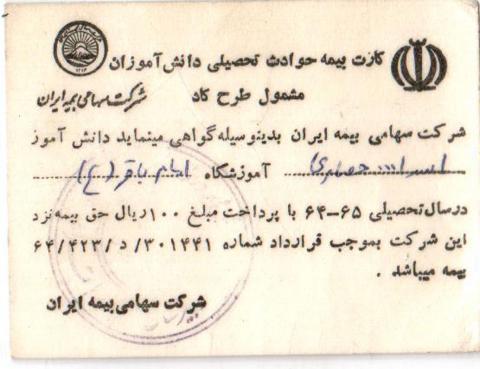 کارت بیمه حوادث تحصیلی دانش‌آموزان
مشمول طرح کاد
شرکت سهامی بیمه ایران
شرکت سهامی بیمه ایران بدینوسیله گواهی مینماید دانش آموز
آموزشگاه امام باقر (ع)
در سال تحصیلی ۶۵-۶۴ با پرداخت مبلغ ۱۰۰ ریال حق بیمه نزد
این شرکت بموجب قرارداد شماره ۳۰۱۴۴۱/د/۶۴/۴۲۳
بیمه میباشد .
شرکت سهامی بیمه ایران